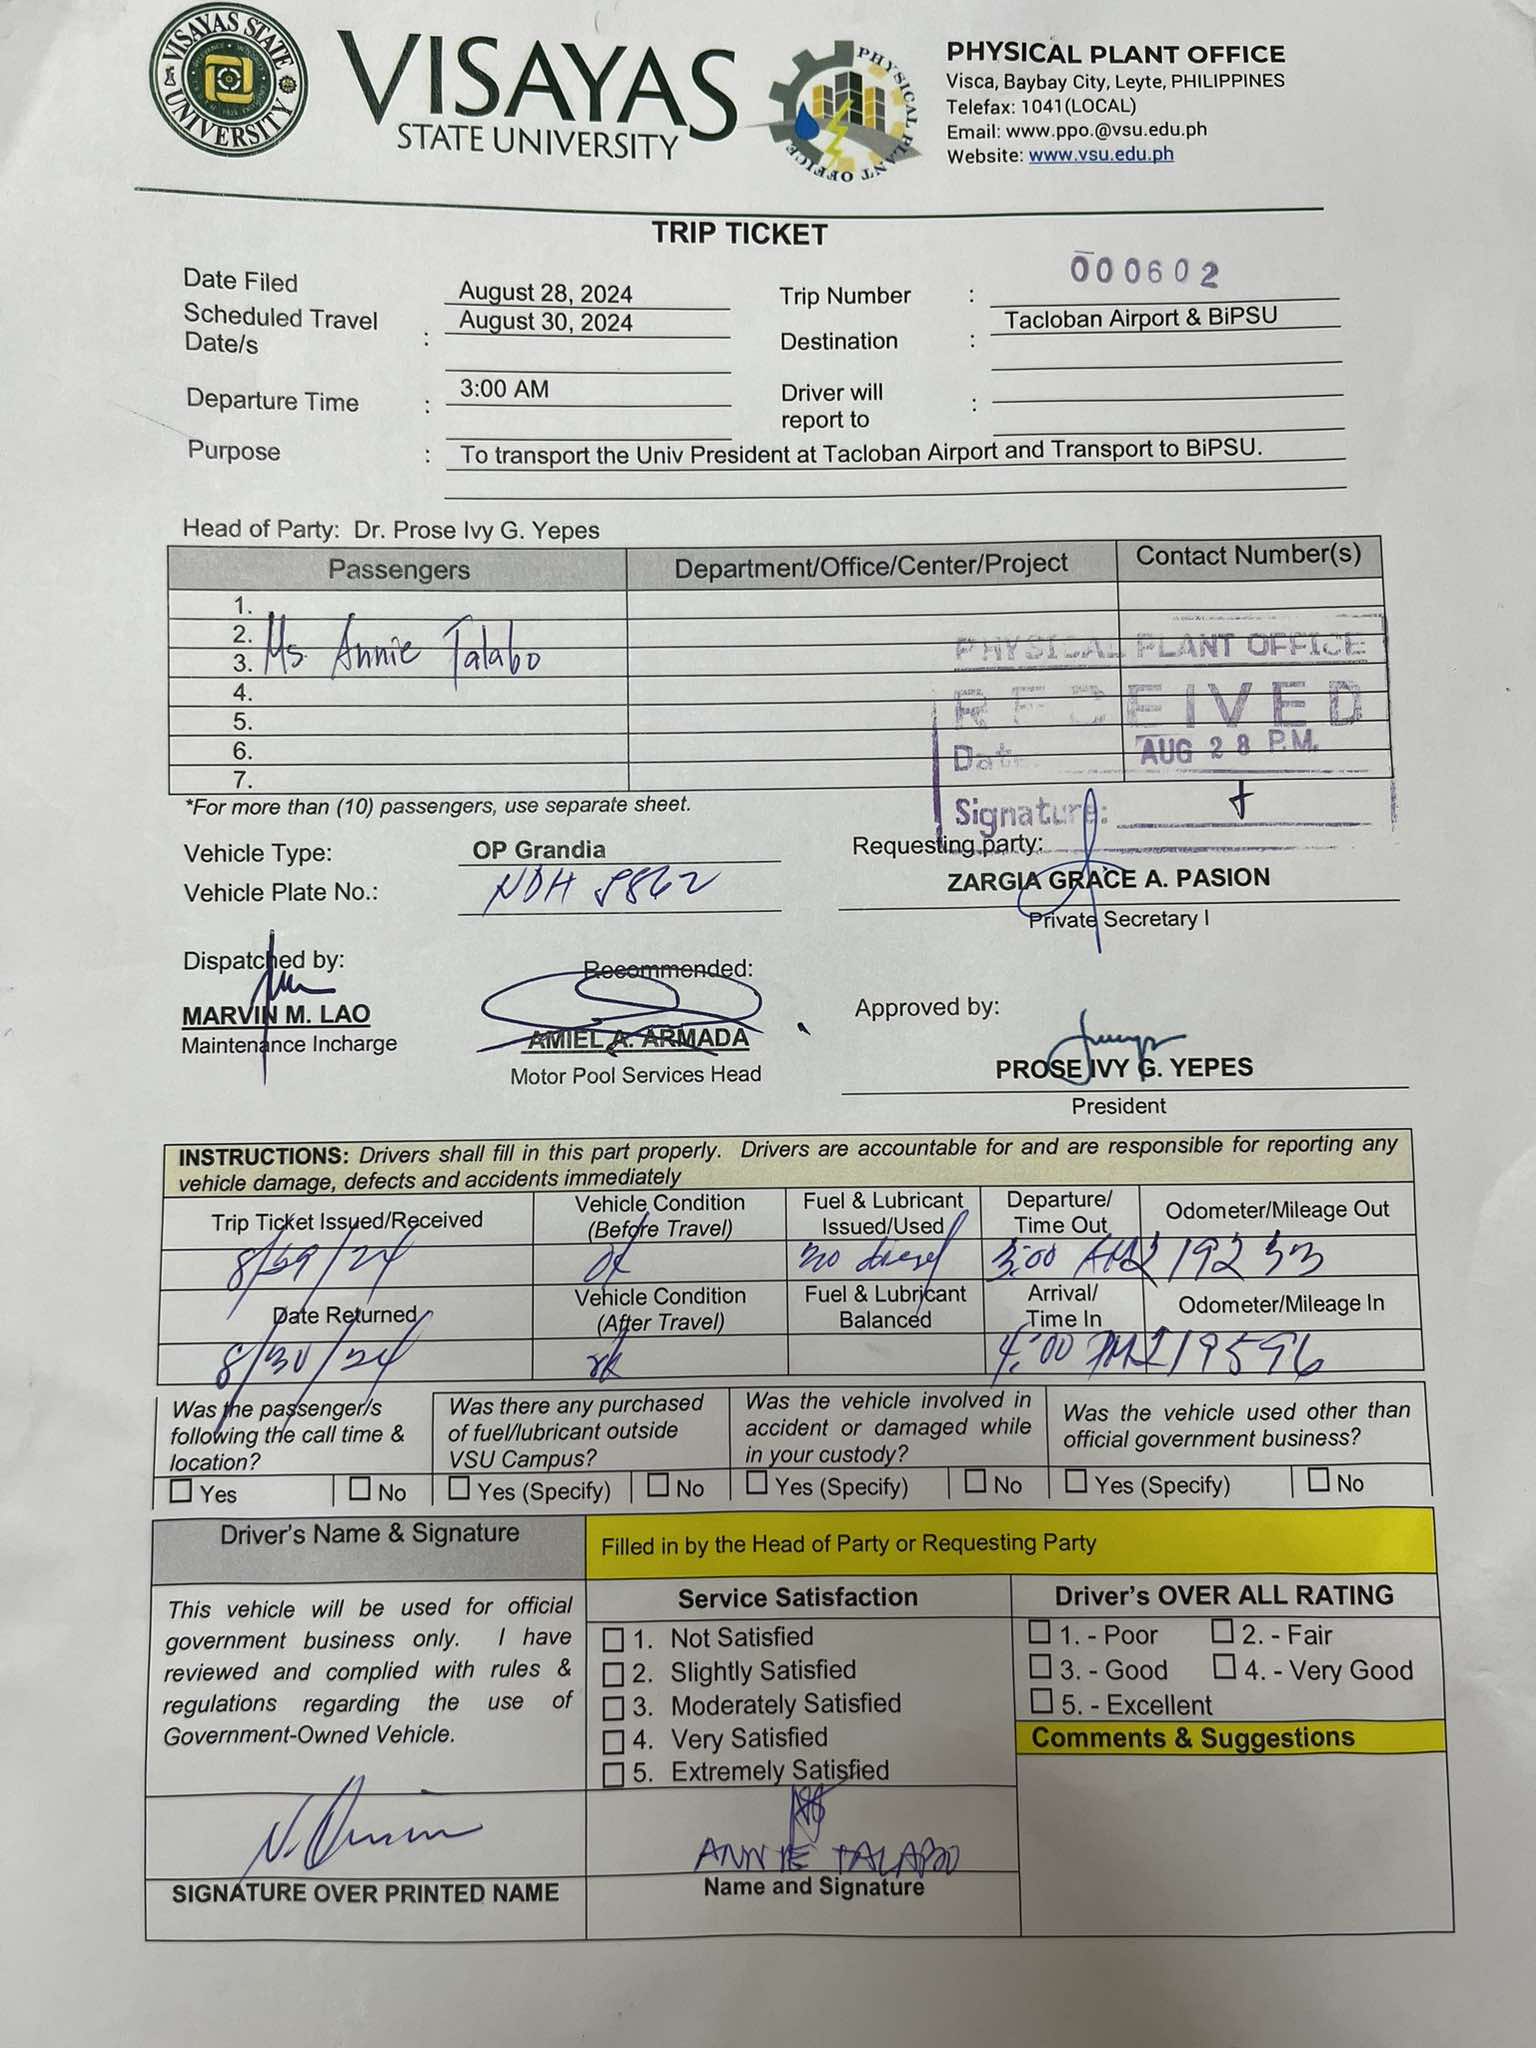 VISAYAS STATE UNIVERSITY
VISAYAS
STATE UNIVERSITY
PHYSICAL PLANT OFFICE
PHYSICAL PLANT OFFICE
Visca, Baybay City, Leyte, PHILIPPINES
Telefax: 1041(LOCAL)
Email: www.ppo.@vsu.edu.ph
Website: www.vsu.edu.ph
TRIP TICKET
Date Filed August 28, 2024 Trip Number : 000602
Scheduled Travel Date/s : August 30, 2024 Destination : Tacloban Airport & BiPSU
Departure Time : 3:00 AM Driver will report to :
Purpose : To transport the Univ President at Tacloban Airport and Transport to BiPSU.
Head of Party: Dr. Prose Ivy G. Yepes
Passengers Department/Office/Center/Project Contact Number(s)
1.
2.
3. Ms. Annie Talabo
4.
5.
6.
7.
PHYSICAL PLANT OFFICE
RECEIVED
Date AUG 28 P.M.
Signature:
*For more than (10) passengers, use separate sheet.
Vehicle Type: OP Grandia
Vehicle Plate No.: NDH 8862
Requesting party:
ZARGIA GRACE A. PASION
Private Secretary I
Dispatched by:
MARVIN M. LAO
Maintenance Incharge
Recommended:
AMIEL A. ARMADA
Motor Pool Services Head
Approved by:
PROSE IVY G. YEPES
President
INSTRUCTIONS: Drivers shall fill in this part properly. Drivers are accountable for and are responsible for reporting any
vehicle damage, defects and accidents immediately
Trip Ticket Issued/Received Vehicle Condition (Before Travel) Fuel & Lubricant Issued/Used Departure/ Time Out Odometer/Mileage Out
8/29/24 ok no diesel 3:00 AM 219233
Date Returned Vehicle Condition (After Travel) Fuel & Lubricant Balanced Arrival/ Time In Odometer/Mileage In
8/30/24 ok 4:00 PM 219596
Was the passenger/s following the call time & location?
Yes No
Was there any purchased of fuel/lubricant outside VSU Campus?
Yes (Specify) No
Was the vehicle involved in accident or damaged while in your custody?
Yes (Specify) No
Was the vehicle used other than official government business?
Yes (Specify) No
Driver's Name & Signature
Filled in by the Head of Party or Requesting Party
This vehicle will be used for official
government business only. I have
reviewed and complied with rules &
regulations regarding the use of
Government-Owned Vehicle.
SIGNATURE OVER PRINTED NAME
Service Satisfaction
1. Not Satisfied
2. Slightly Satisfied
3. Moderately Satisfied
4. Very Satisfied
5. Extremely Satisfied
ANNIE TALABO
Name and Signature
Driver's OVER ALL RATING
1. - Poor 2. - Fair
3. - Good 4. - Very Good
5. - Excellent
Comments & Suggestions